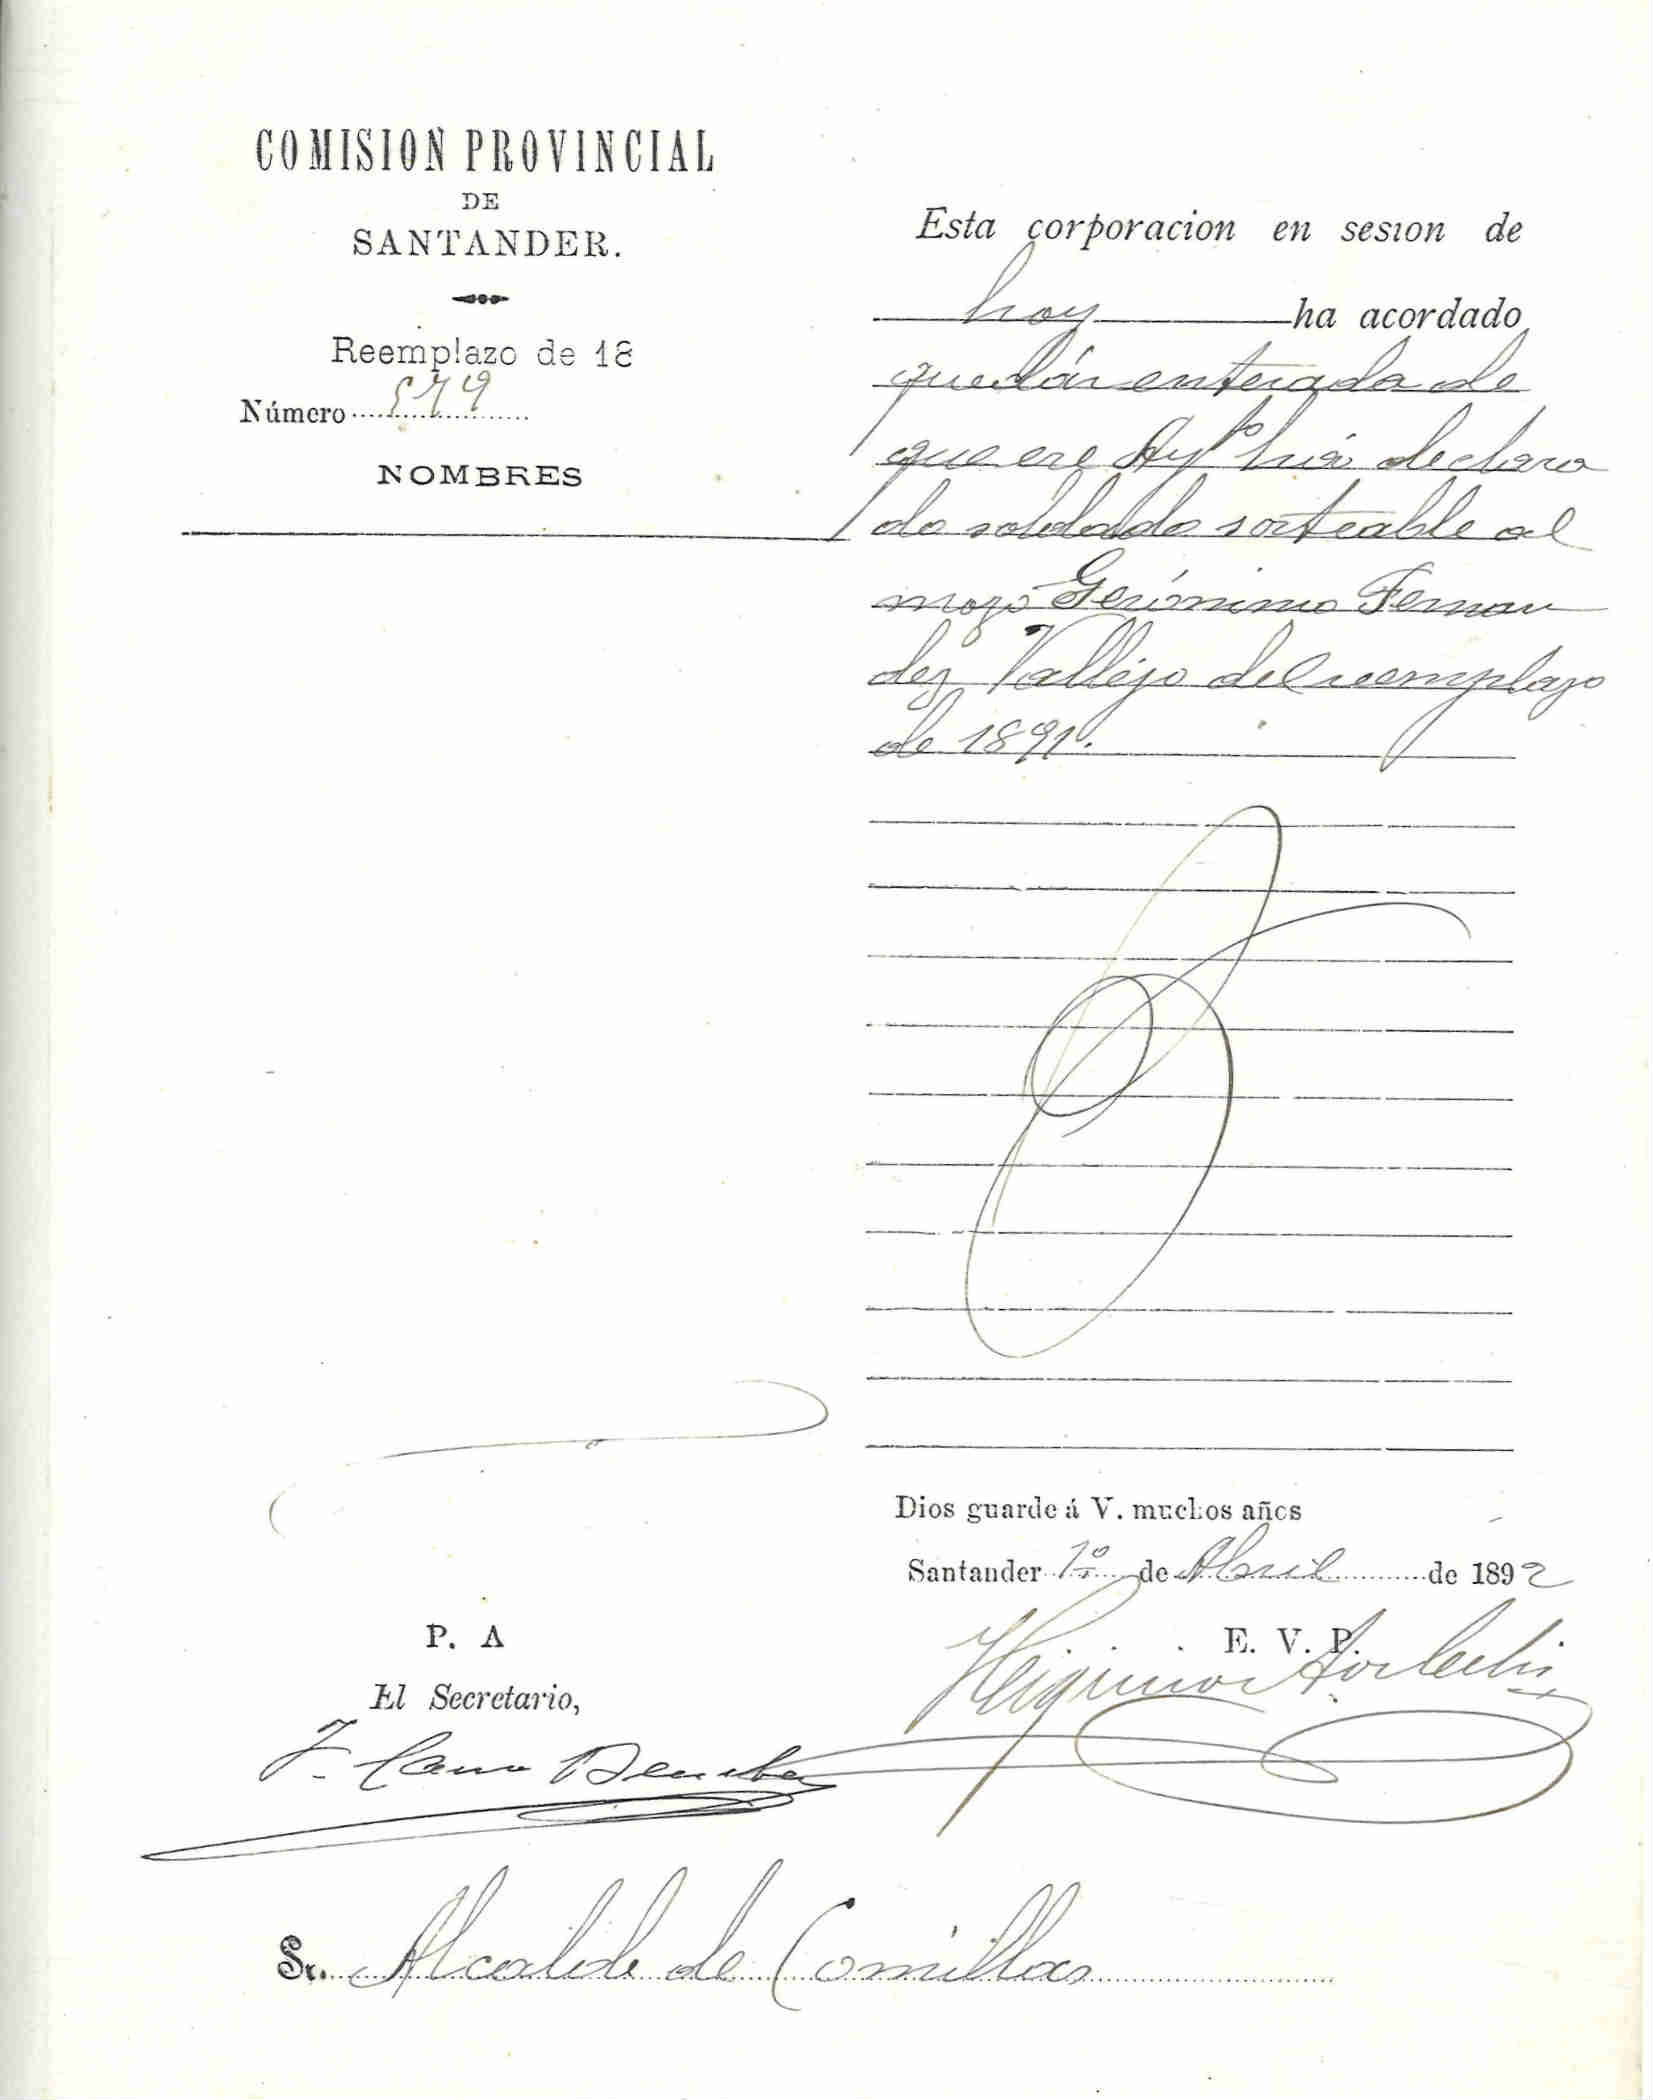 COMISION PROVINCIAL
DE
SANTANDER.
Reemplazo de 18
Número 579
NOMBRES
Esta corporacion en sesion de
hoy ha acordado
quedár enterada de
que ese Ayto há declara
do soldado sorteable al
mozo Gerónimo Fernan
dez Vallejo del reemplazo
de 1891.
Dios guarde á V. muchos años
Santander 1º de Abril de 1892
P. A
El Secretario,
F. Cano
E. V. P.
Higinio
Sr. Alcalde de Comillas